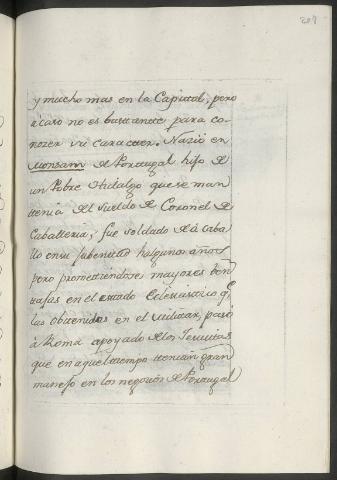 y mucho mas en la Capital, pero
acaso no es bastante para co-
nozer su caracter. Nazió en
Monsam de Portugal hijo de
un Pobre Hidalgo que se man
tenia del sueldo de Coronel de
Caballeria, fue soldado de á caba
llo en su jubentud halgunos años
pero prometiendose mayores ben
tajas en el estado Eclesiastico q.e
las obtenidas en el militar, pasó
á Roma apoyado de los Jesuitas
que en aquel tiempo tenian gran
manejo en los negocios de Portugal